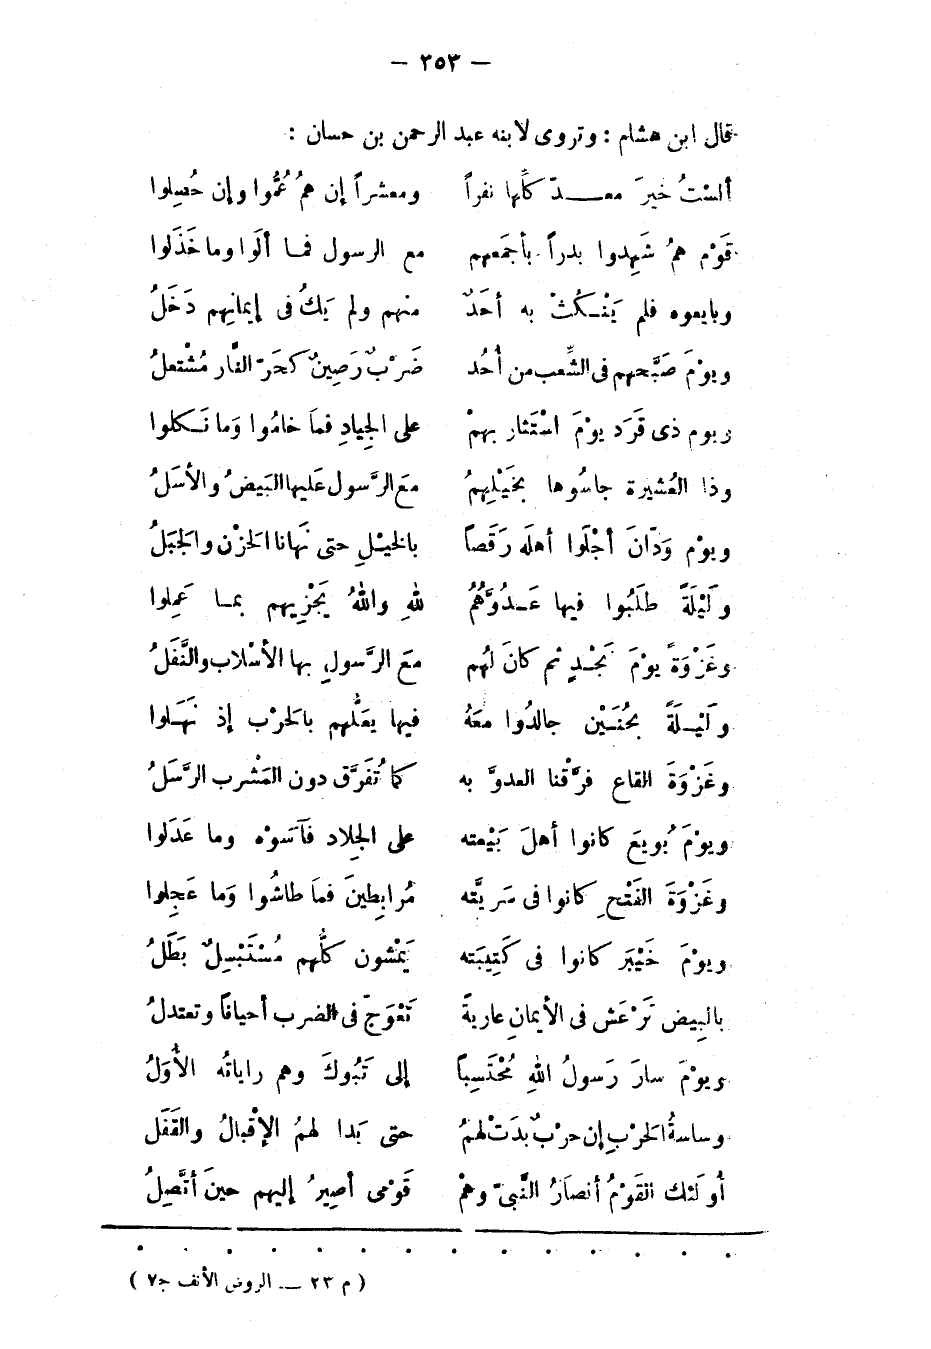 — ٣٥٣ —
قال ابن هشام : وتروى لابنه عبد الرحمن بن حسان :
ألستُ خيرَ معـــدّ كلِّها نفراً ومعشراً إن همُ عُمُّوا وإن حُصِلوا
قَوْم همُ شَهِدوا بدراً بأجمَعهم مع الرسول فمـا ألَوا وما خَذَلوا
وبايعوه فلم يَنْـكُثْ به أحَدٌ منهم ولم يَكُ فى إيمانِهم دَخَلُ
ويوْمَ صَبَّحهم فى الشِّعب من أُحُد ضَرْبٌ رَصِينٌ كحَرّ النَّار مُشْتعلُ
ويوم ذى قَرَد يوْمَ اسْتَثار بهمْ على الجِيادِ فمَا خامُوا وَما نَـكلوا
وذا العُشيرة جاسُوها بخَيْلِهمُ معَ الرَّسول عَليها البَيضُ والأسَلُ
ويوْم وَدّانَ أجْلَوا أهلَه رَقَصاً بالخيْلِ حتى نَهانا الحَزْن والجَبَلُ
ولَيْلَةً طلَبُوا فيها عَـدُوَّهُمُ للهِ واللهُ يَجْزِيهم بمـا عَمِلوا
وغَزْوَةً يوْمَ نَجْـدٍ ثم كانَ لهُم معَ الرَّسولِ بها الأسْلاب والنَّفَلُ
ولَيْـلَةً بحُنَيْن جالدُوا معَهُ فيها يعَلُّهم بالحَرْب إذ نَهَـلوا
وغَزْوَةَ القاع فرَّقْنا العدوَّ به كما تُفَرَّق دون المَشْرب الرَّسَلُ
ويوْمَ بُويعَ كانوا أهلَ بَيْعته على الجِلاد فآسَوْه وما عَدَلوا
وغَزْوَةَ الفَتْحِ كانوا فى سَريَّته مُرابِطينَ فمَا طاشُوا وَما عَجِلوا
ويوْمَ خَيْبَر كانوا فى كَتِيبَته يَمْشون كلُّهم مُسْتَبْسِلٌ بَطَلُ
بالبِيض تَرْعَش فى الأيمانِ عاريةً تَعْوَجّ فى الضرب أحياناً وتعتدلُ
ويوْمَ سارَ رَسولُ اللهِ مُحْتَسِباً إلى تَبُوكَ وهم راياتُه الأُوَلُ
وساسةُ الحَرْبِ إن حرْبٌ بدَتْ لهمُ حتى بَدا لهمُ الإقْبالُ والقَفَل
أُولئك القَوْمُ أنصَارُ النَّبىّ وهمْ قَوْمى أصِيرُ إليهم حينَ أتَّصِلُ
. . . . . . . . . . . . . .
( م ٢٣ — الروض الأنف ج٧ )